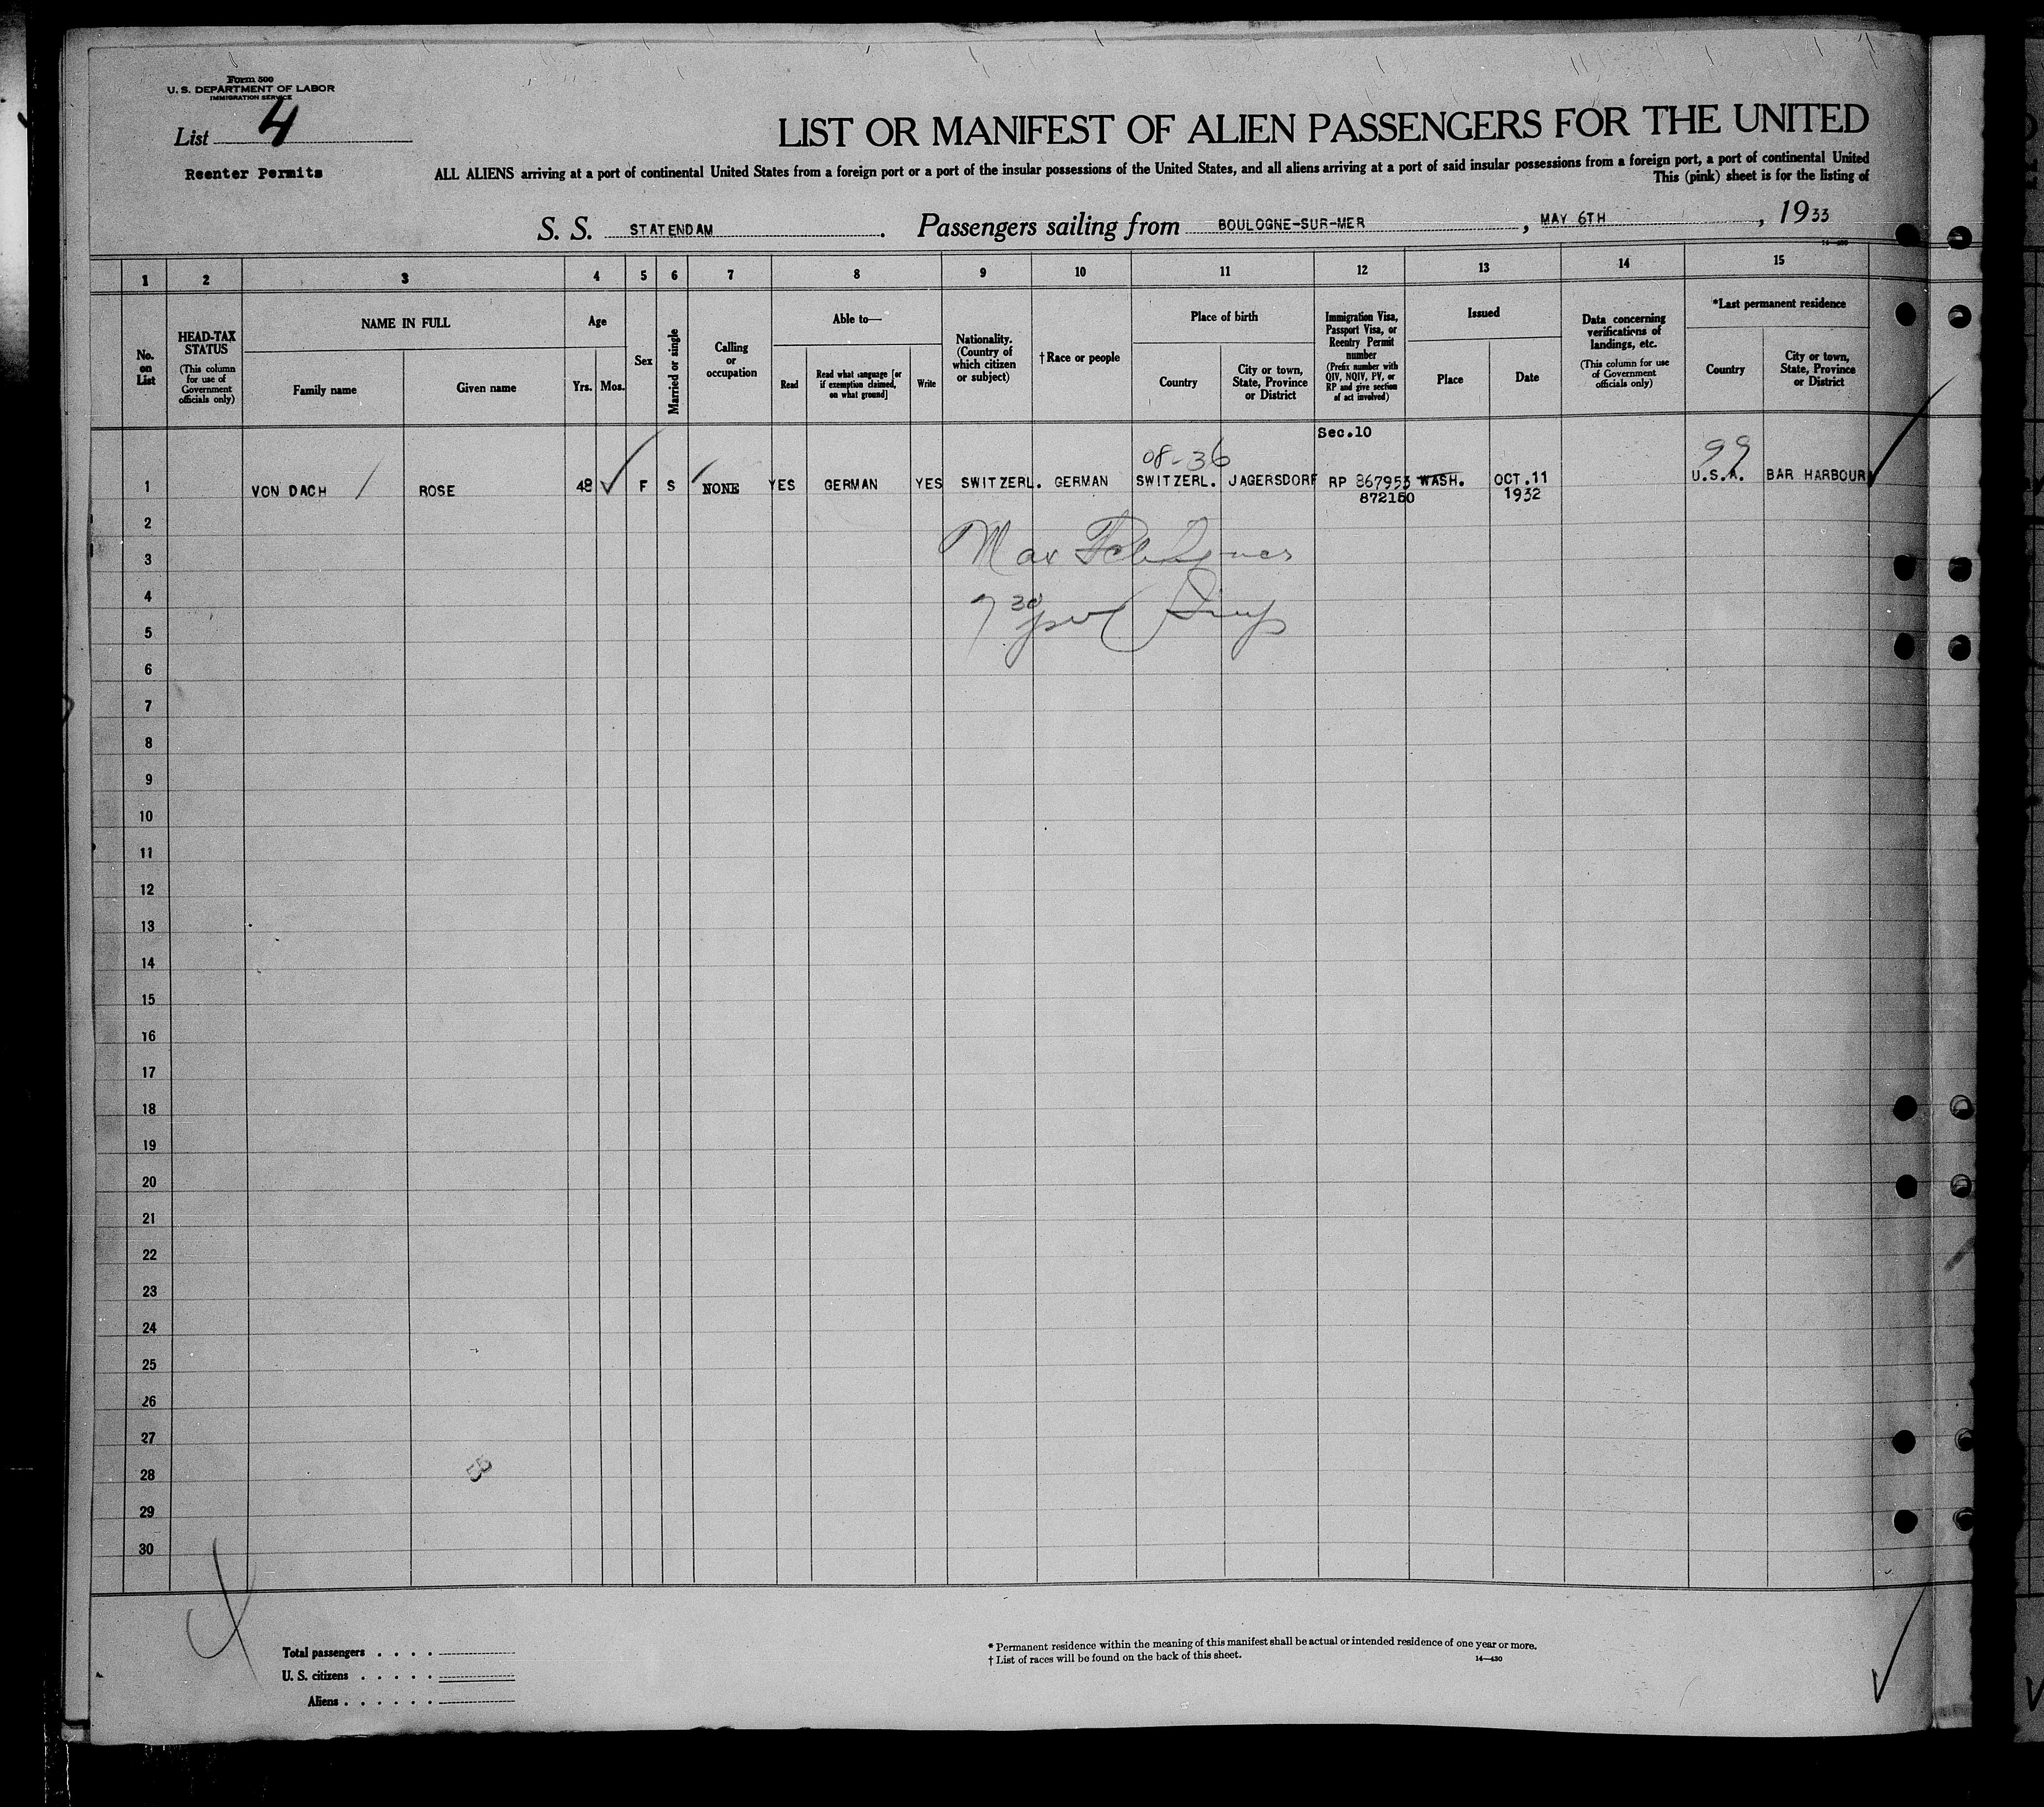 Form 500
U. S. DEPARTMENT OF LABOR
IMMIGRATION SERVICE
List 4
Reenter Permits
LIST OR MANIFEST OF ALIEN PASSENGERS FOR THE UNITED
ALL ALIENS arriving at a port of continental United States from a foreign port or a port of the insular possessions of the United States, and all aliens arriving at a port of said insular possessions from a foreign port, a port of continental United
This (pink) sheet is for the listing of
S. S. STATENDAM. Passengers sailing from BOULOGNE-SUR-MER, MAY 6TH, 1933
1 2 3 4 5 6 7 8 9 10 11 12 13 14 15
No. on List
HEAD-TAX STATUS
(This column for use of Government officials only)
NAME IN FULL
Family name
Given name
Age
Yrs. Mos.
Sex
Married or single
Calling or occupation
Able to—
Read
Read what language [or if exemption claimed, on what ground]
Write
Nationality. (Country of which citizen or subject)
† Race or people
Place of birth
Country
City or town, State, Province or District
Immigration Visa, Passport Visa, or Reentry Permit number
(Prefix number with QIV, NQIV, PV, or RP and give section of act involved)
Issued
Place
Date
Data concerning verifications of landings, etc.
(This column for use of Government officials only)
*Last permanent residence
Country
City or town, State, Province or District
Sec.10
08-36
99
1 VON DACH ROSE 48 F S NONE YES GERMAN YES SWITZERL. GERMAN SWITZERL. JAGERSDORF RP 867953 WASH. OCT.11 U.S.A. BAR HARBOUR
872150 1932
2
Max
3
4
7 30
5
6
7
8
9
10
11
12
13
14
15
16
17
18
19
20
21
22
23
24
25
26
27
28
29
30
Total passengers . . . .
U. S. citizens . . . . .
Aliens . . . . . .
* Permanent residence within the meaning of this manifest shall be actual or intended residence of one year or more.
† List of races will be found on the back of this sheet.
14—430